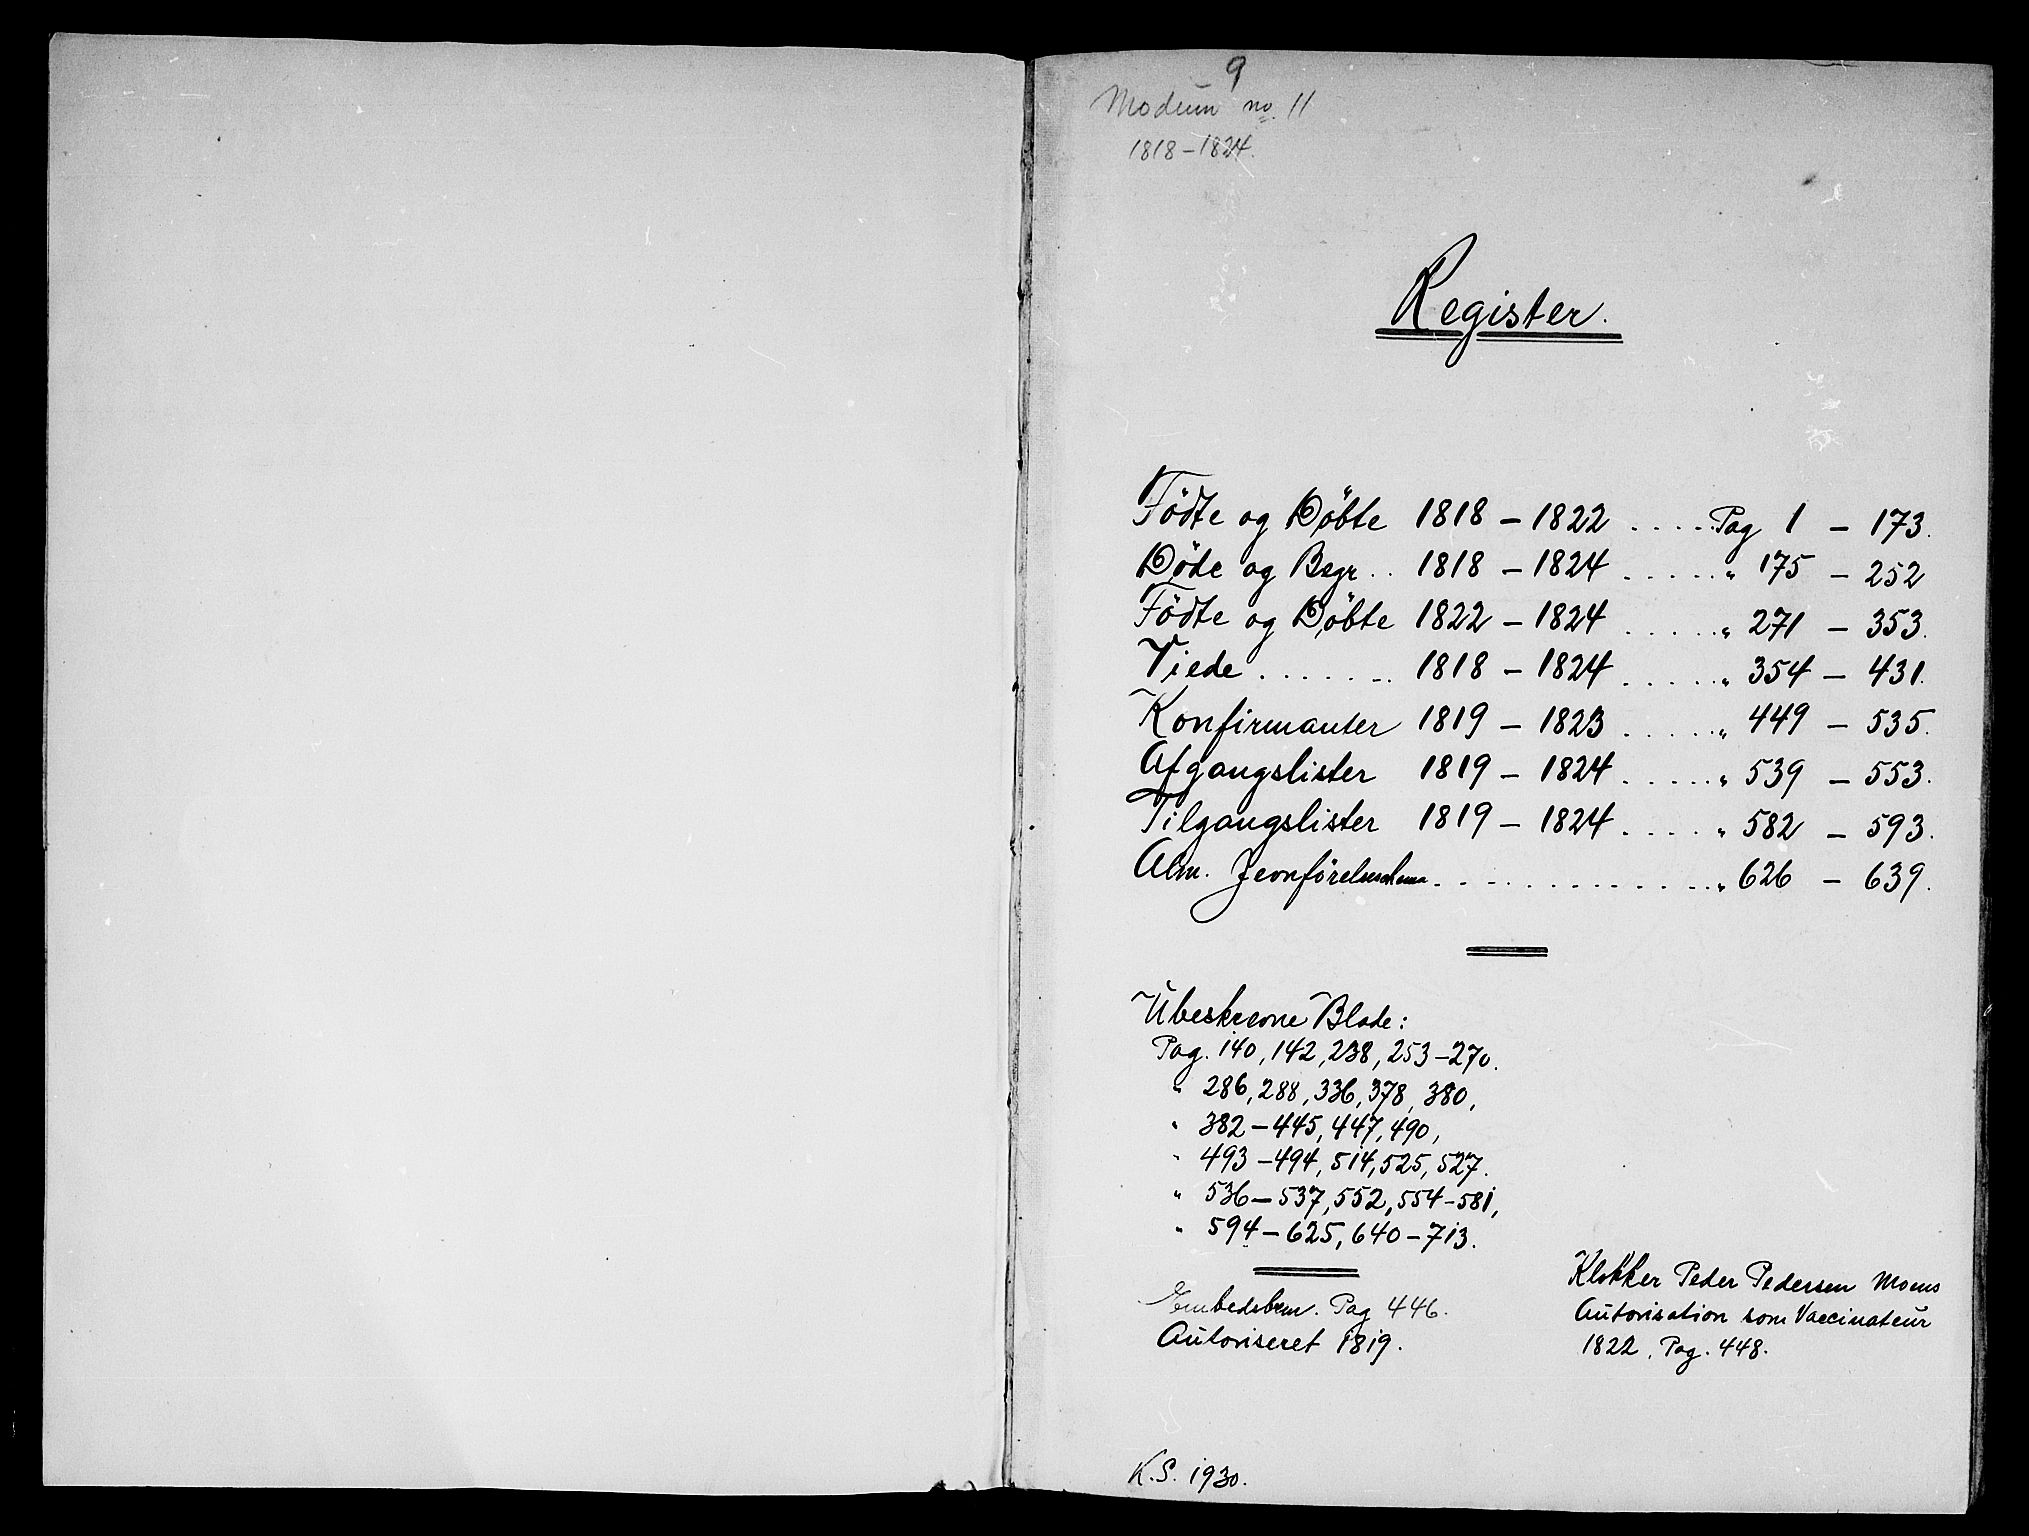 9
Modum no. 11
1818-1824.
Register.
Födte og Döbte 1818 - 1822 ..... Pag 1 - 173.
Döde og Begr .. 1818 - 1824 ..... " 175 - 252
Födte og Döbte 1822 - 1824 ..... " 271 - 353.
Viede ....... 1818 - 1824 ..... " 354 - 431.
Konfirmanter 1819 - 1823 ..... " 449 - 535.
Afgangslister 1819 - 1824 ..... " 539 - 553.
Tilgangslister 1819 - 1824 .... " 582 - 593.
Alm. ............. " 626 - 639.
Ubeskrevne Blade:
Pag. 140, 142, 238, 253-270.
" 286, 288, 336, 378, 380,
" 382-445, 447, 490,
" 493-494, 514, 525, 527.
" 536-537, 552, 554-581,
" 594-625, 640-713.
Embedsbem. Pag 446.
Autoriseret 1819.
Klokker Peder Pedersen Moens
Autorisation som Vaccinateur
1822. Pag. 448.
K.S. 1930.